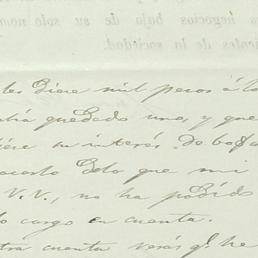 negocios bajo de su solo nom
ientes de la sociedad.
les diese mil pesos á la
quedado uno, y que
su interés de bo
solo que mi
V. V., no ha podido
cargo en cuenta.
tra cuenta verás q.e he